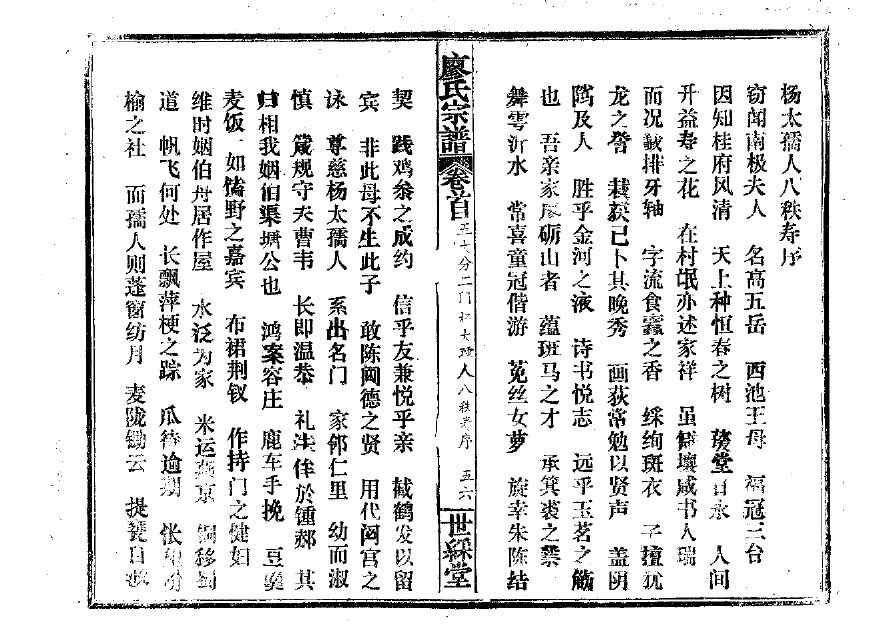 杨太孺人八秩寿序
窃闻南极夫人　名高五岳　西池王母　福冠三台
因知桂府风清　天上种恒春之树　萱堂日永　人间
开益寿之花　在村氓亦述家祥　虽僻壤咸书人瑞
而况缄排牙轴　字流食蠹之香　綵绚斑衣　子擅犹
龙之誉　栽荻已卜其晚秀　画荻常勉以贤声　盖阴
骘及人　胜乎金河之液　诗书悦志　远乎玉茗之觞
也　吾亲家廖砺山者　蕴班马之才　承箕裘之业
舞雩沂水　常喜童冠偕游　菟丝女萝　旋幸朱陈结
廖氏宗譜　卷首　五十分二门杨太孺人八秩寿序　五六　世綵堂
契　践鸡黍之成约　信乎友兼悦乎亲　截鹤发以留
宾　非此母不生此子　敢陈阃德之贤　用代閟宫之
诔　尊慈杨太孺人　系出名门　家邻仁里　幼而淑
慎　箴规守夫曹韦　长即温恭　礼法侔於锺郝　其
归相我姻伯渠塘公也　鸿案容庄　鹿车手挽　豆羹
麦饭　如馌野之嘉宾　布裙荆钗　作持门之健妇
维时姻伯舟居作屋　水泛为家　米运燕京　铜移蜀
道　帆飞何处　长飘萍梗之踪　瓜待逾期　怅望枌
榆之社　而孺人则蓬窗纺月　麦陇锄云　提瓮自